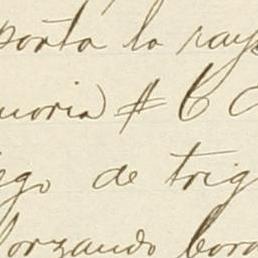 porta la raya
moria) # 6 C
ego de trig
forzando bord